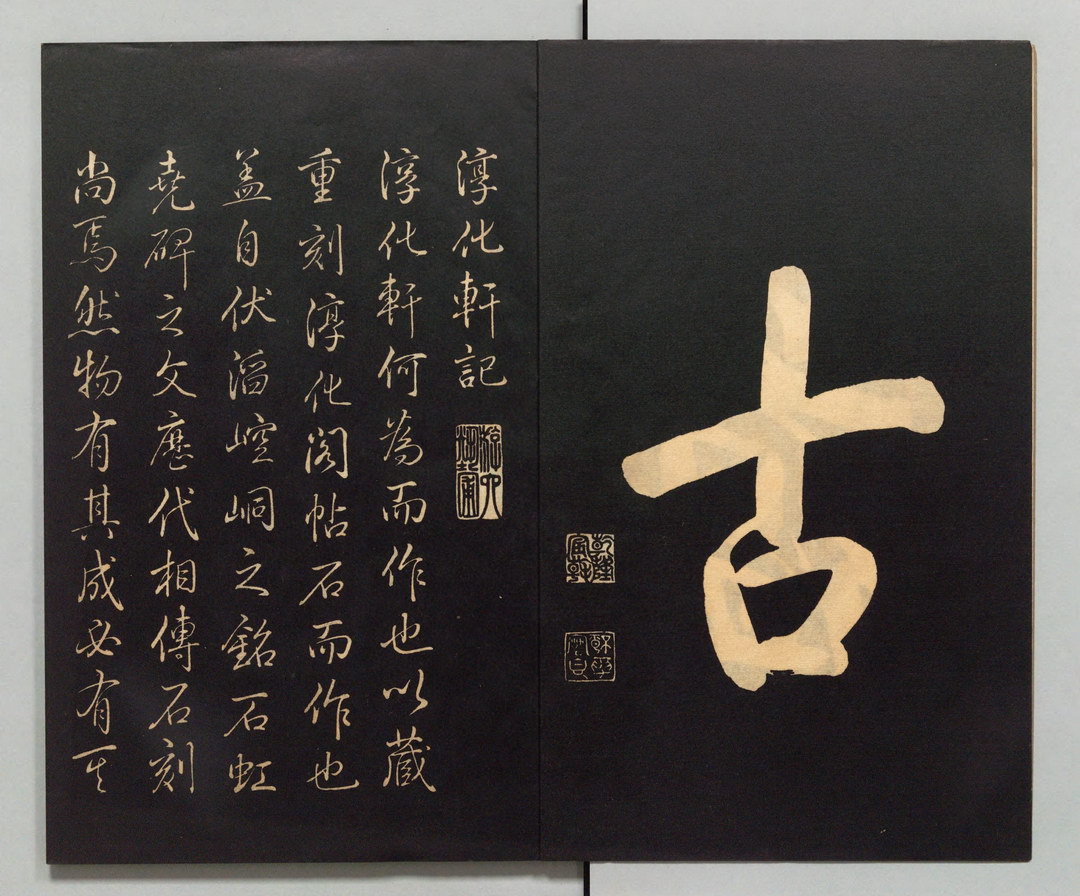 古
乾隆
宸翰
淳化軒記
淳化軒何為而作也以藏
重刻淳化閣帖石而作也
盖自伏滔崆峒之銘石虹
堯碑之文歷代相傳石刻
尚焉然物有其成必有其